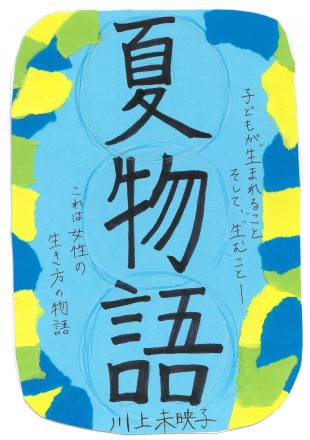 子どもが"生まれる"こと
そして、"生む"こと―
夏物語
これは女性の
生き方の物語
川上未映子